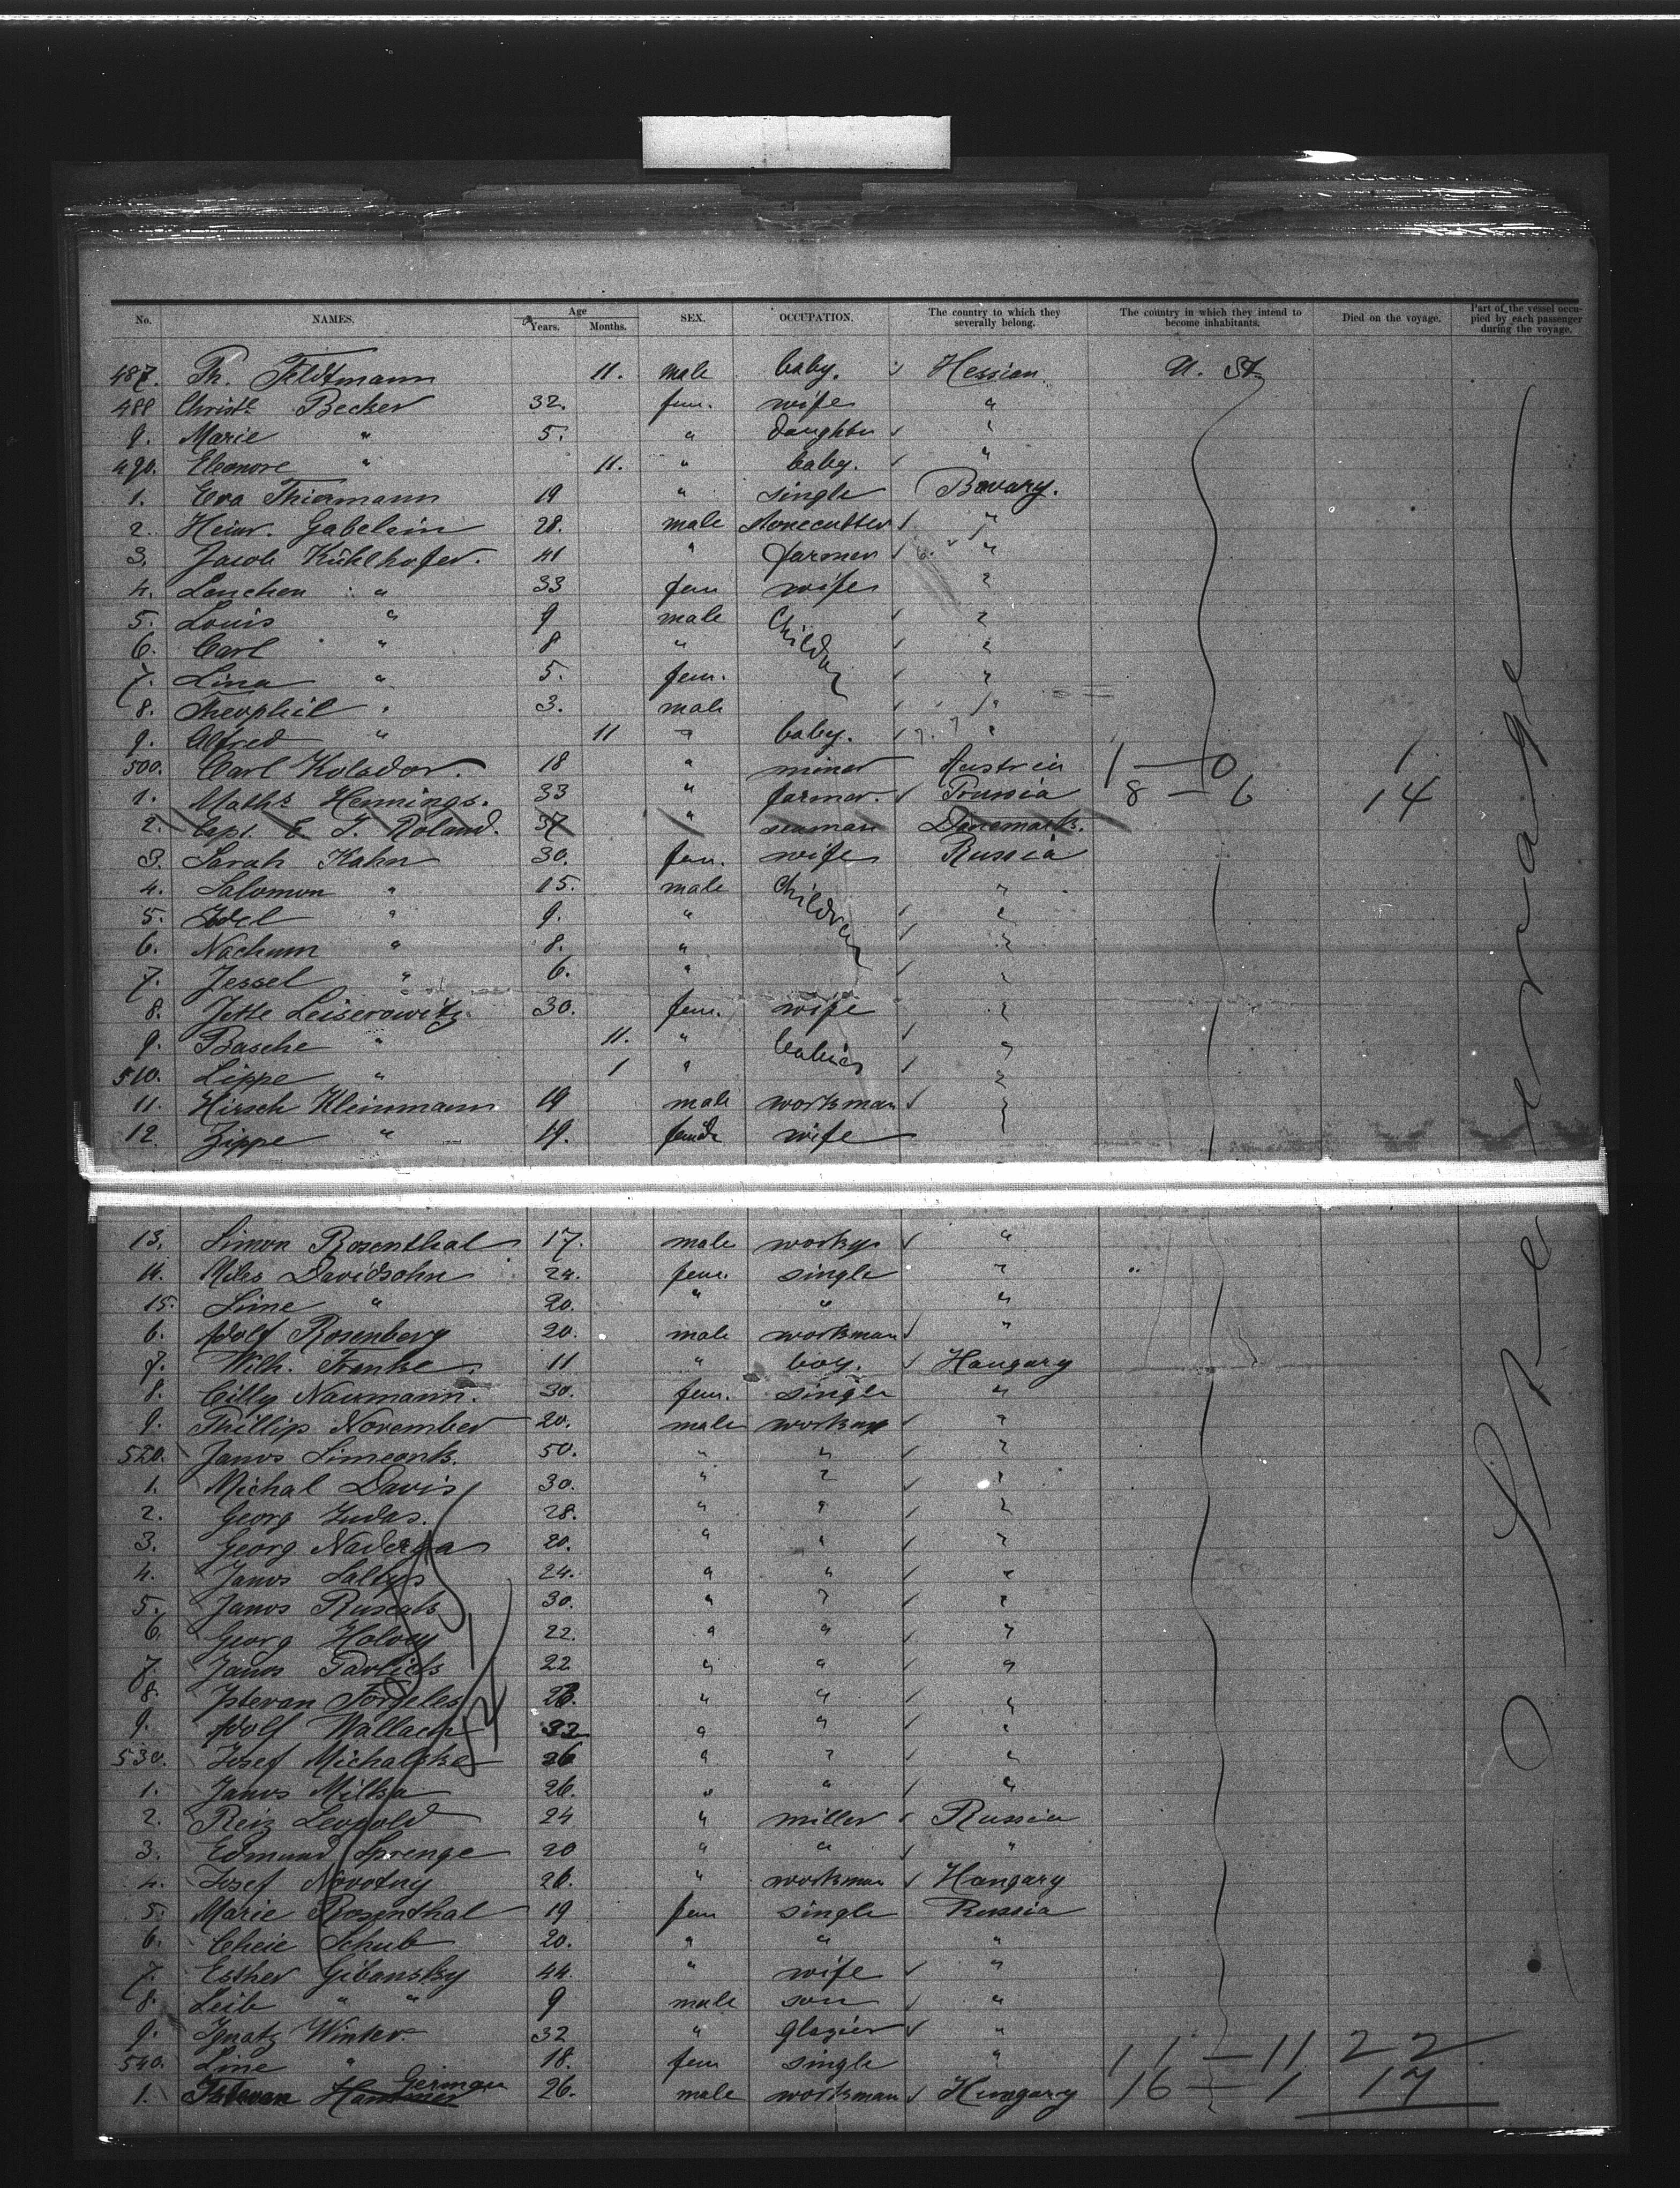 No. NAMES. Age Years. Months. SEX. OCCUPATION. The country to which they severally belong. The country in which they intend to become inhabitants. Died on the voyage. Part of the vessel occupied by each passenger during the voyage.
487. Th. Feldtmann 11. male baby. Hessian U. St.
488 Christe Becker 32. fem. wife "
9. Marie " 5. " daughter "
490. Eleonore " 11. " baby. "
1. Eva Thiermann 19 " single Bavary.
2. Heinr. Gabelein 28. male stonecutter "
3. Jacob Kühlhofer. 41 " farmer "
4. Lenchen " 33 fem wife "
5. Louis " 9 male Children "
6. Carl " 8 " "
7. Lina " 5. fem. "
8. Theophil " 3. male "
9. Alfred " 11 " baby. "
500. Carl Kolador. 18 " miner Austria 1 — 0 1
1. Maths Hennings. 33 " farmer. Prussia 8 — 6 14
2. Capt. E. J. Roland. 37 " seaman Danemark.
3. Sarah Kahn 30. fem. wife Russia
4. Salomon " 15. male Children "
5. Idel " 9. " "
6. Nachum " 8. " "
7. Jessel " 6. " "
8. Jette Leiserowitz 30. fem. wife "
9. Basche " 11. " babies "
510. Lippe " 1 " "
11. Hirsch Kleinmann 19 male workman "
12. Zippe " 19. female wife
13. Simon Rosenthal 17. male workm "
14. Miles Davidsohn 24. fem. single " "
15. Sime " 20. " " "
6. Adolf Rosenberg 20. male workman "
7. Wilh. Franke 11 " boy. Hangary
8. Cilly Naumann. 30. fem. single "
9. Phillip November 20. male workman "
520. Janos Simeonk. 50. " " "
1. Michal Davis 30. " " "
2. Georg Judas. 28. " " "
3. Georg Naderga 20. " " "
4. Janos Saltys 24. " " "
5. Janos Ruscak 30. " " "
6. Georg Holovy 22. " " "
7. Janos Pavlick 22 " " "
8. Istevan Torgeles 26. " " "
9. Adolf Wallach 32 " " "
530. Josef Michalske 26 " " "
1. Janos Milka 26. " " "
2. Reiz Leopold 24 " miller Russia
3. Edmund Sprenge 20 " " "
4. Josef Novotny 26. " workman Hangary
5. Marie Rosenthal 19 fem single Russia
6. Cheie Schub 20. " " "
7. Esther Gibansky 44. " wife "
8. Leib " " 9 male son "
9. Ignatz Winter 32 " glazier "
540. Line " 18. fem single " 11 — 11 22
1. Istevan German 26. male workman Hungary 16 — 1 17
Steerage